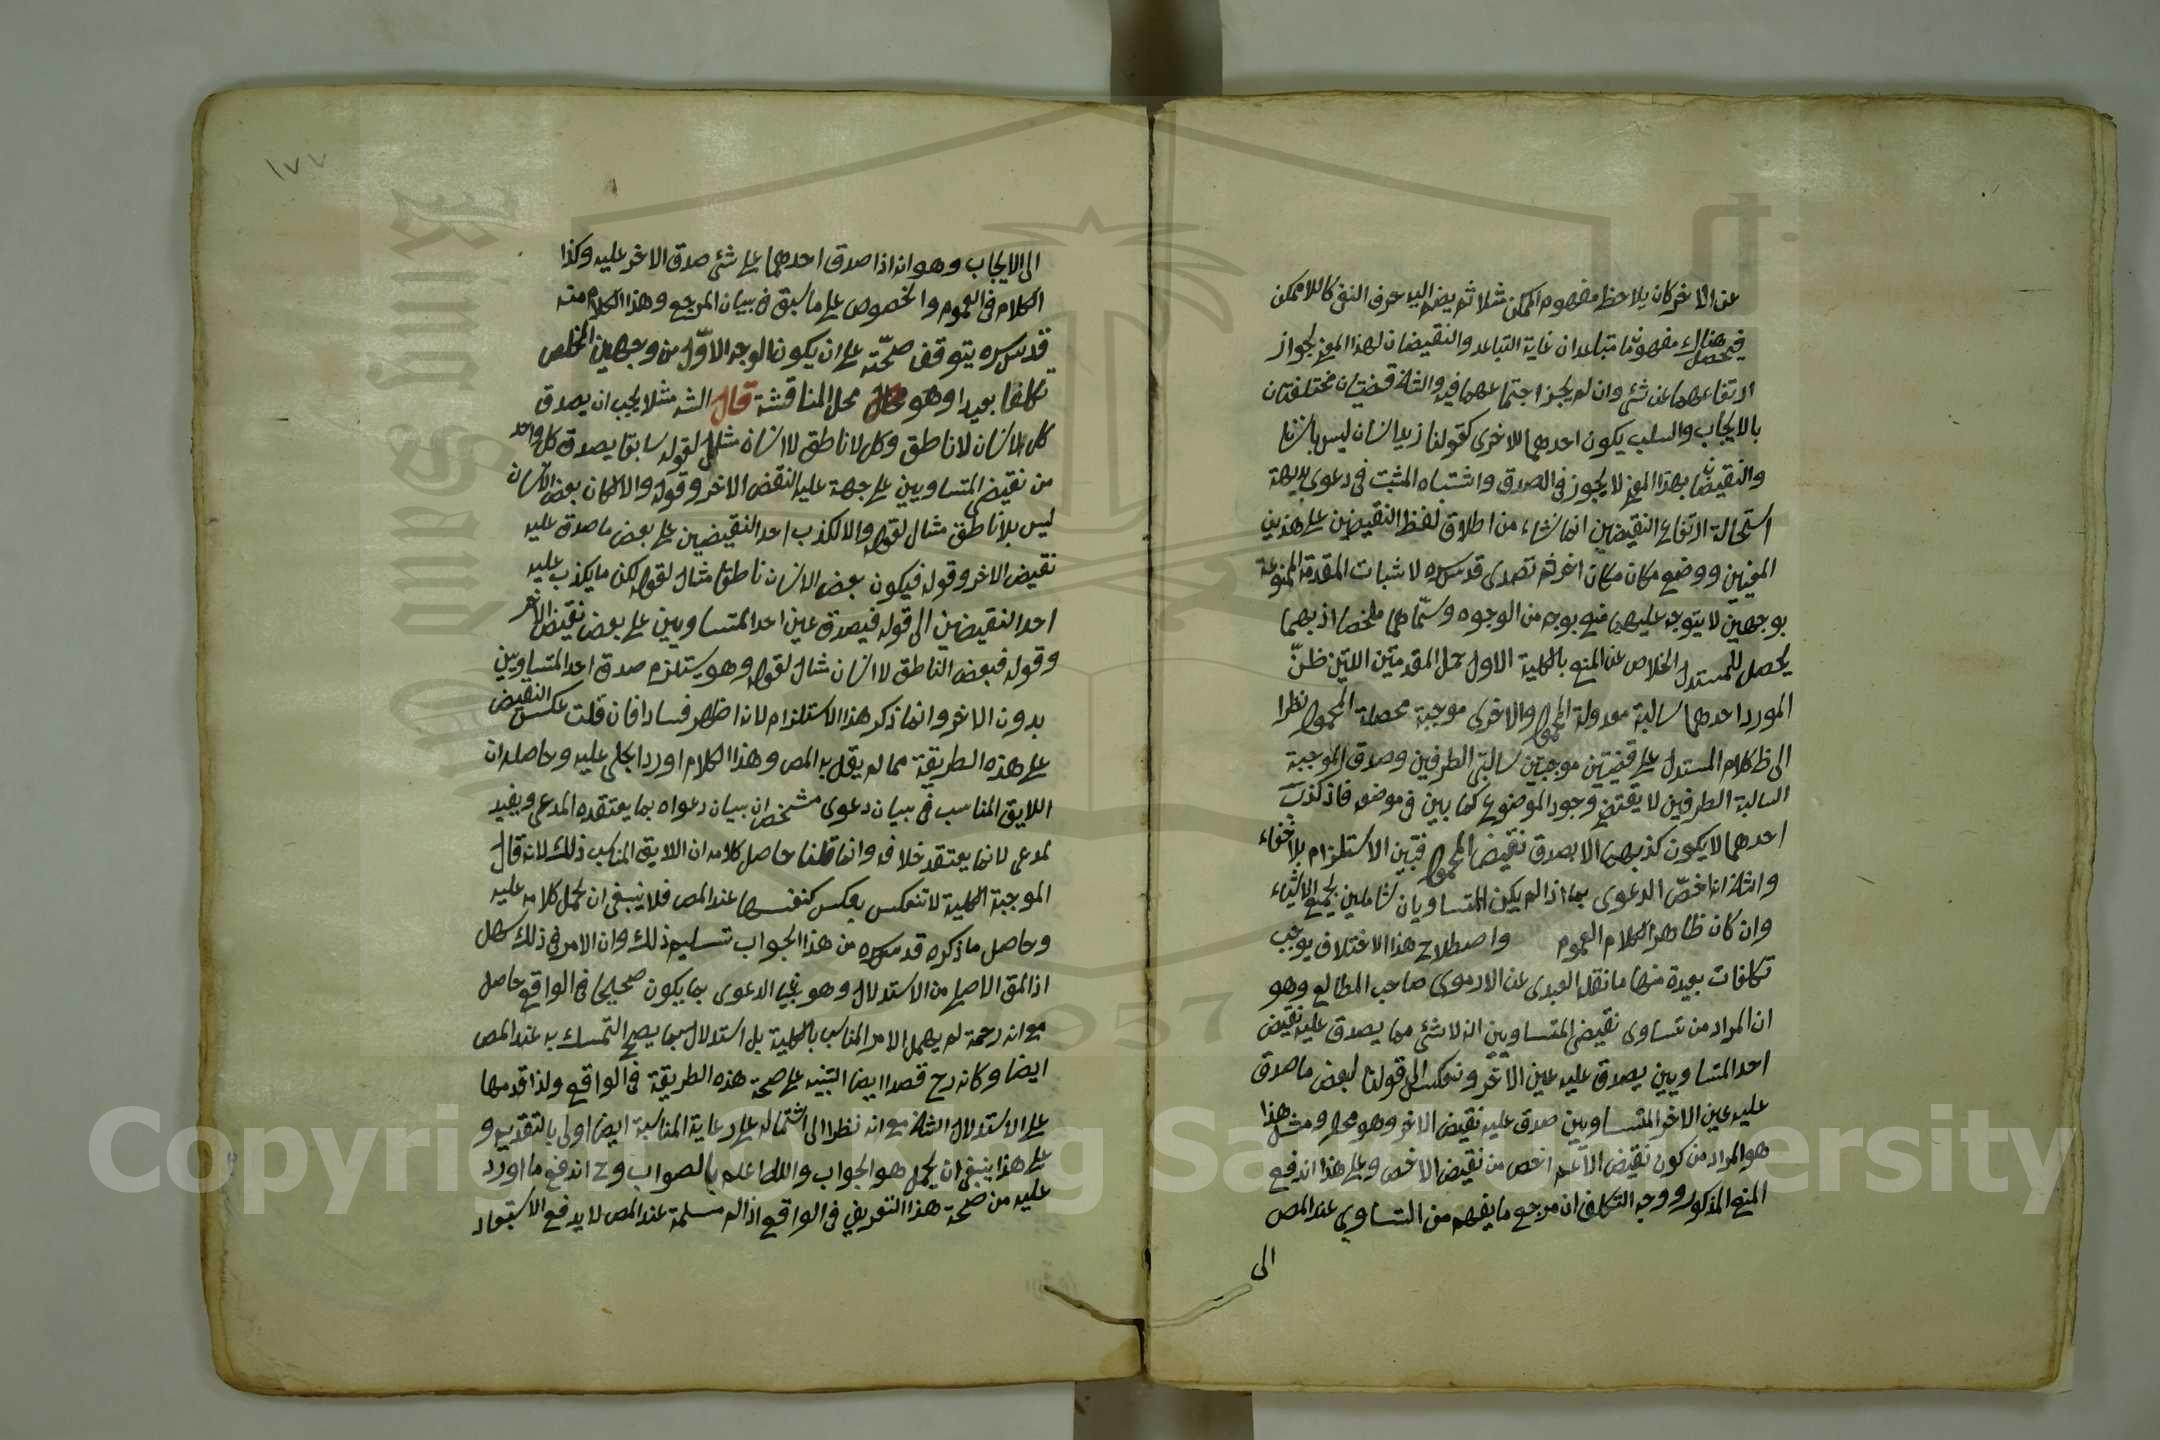 عن الاخر كان يلاحظ مفهوم الممكن مثلا ثم يضم اليه حرف النفى كاللاممكن
فيحصل هناك مفهومان متباعدان غاية التباعد والنقيضان لهذا المعنى يجوز
ارتفاعهما عن شئ وان لم يجز اجتماعهما فيه والثانى قضيتان مختلفتان
بالايجاب والسلب يكون احدهما للاخرى كقولنا زيد انسان ليس بانسان
والنقيضان بهذا المعنى لا يجوز فى الصدق واشتباه المثبت فى دعوى بديهة
استحالة ارتفاع النقيضين انما نشاء من اطلاق لفظ النقيضين على هذين
المعنيين ووضع مكان مكان اخر ثم تصدى قدس سره لاثبات المقدمة الممنوعة
بوجهين لا يتوجه عليهما منع بوجه من الوجوه وسماهما ملخصا اذ بهما
يحصل للمستدل الخلاص عن المنع بالكلية الاول حمل المقدمتين اللتين ظنّ
المورد احدهما سالبة معدولة المحمول والاخرى موجبة محصلة المحمول نظرا
الى ظ كلام المستدل على قضيتين موجبتين سالبتى الطرفين وصدق الموجبة
السالبة الطرفين لا يقتضى وجود الموضوع كما بين فى موضعه فاذ كذبت
احدهما لا يكون كذبهما الا بصدق نقيض المحمول فتبين الاستلزام بلا خفاء
والثانى انا نخصّ الدعوى بما اذا لم يكن المتساويان شاملين لجميع الاشياء
وان كان ظاهر الكلام العموم واصطلاح هذا الاختلاف يوجب
تكلفات بعيدة منها ما نقله العبدى عن الارموى صاحب المطالع وهو
ان المراد من تساوى نقيضى المتساويين انه لا شئ مما يصدق عليه نقيض
احد المتساويين يصدق عليه عين الآخر وتنعكس الى قولنا لبعض ما صدق
عليه عين الاخر المتساويين صدق عليه نقيض الاخر وهو مح ومثل هذا
هو المراد من كون نقيض الاعم اخص من نقيض الاخص وعلى هذا اندفع
المنع المذكور ووجه التكلف ان مرجع ما يفهم من التساوى عند المص
الى
١٧٧
الى الايجاب وهو انه اذا صدق احدهما على شئ صدق الاخر عليه وكذا
الكلام فى العموم والخصوص على ما سبق فى بيان المرجع وهذا الكلام منه
قدس سره يتوقف صحّته على ان يكون الوجه الاوّل من وجهين المخلص
تكلفا بعيدا وهو محل المناقشة قال الشه مثلا يجب ان يصدق
كل لا انسان لا ناطق وكل لا ناطق لا انسان مثال لقوله سابقا يصدق كل واحد
من نقيضى المتساويين على جهة عليه النقض الاخر وقوله والا لكان بعض الانسان
ليس بلا ناطق مثال لقوله والا لكذب احد النقيضين على بعض ما صدق عليه
نقيض الاخر وقوله فيكون بعض الا انسان ناطقا مثال لقوله لكن ما يكذب عليه
احد النقيضين الى قوله فيصدق عين احد المتساويين على بعض نقيض الاخر
وقوله فبعض الناطق لا انسان مثال لقوله وهو يستلزم صدق احد المتساويين
بدون الاخر وانما ذكر هذا الاستلزام لانه اظهر فسادا فان قلت عكس النقيض
على هذه الطريقة مما لم يقل به المص وهذا الكلام اورد الجلى عليه وحاصله ان
اللايق المناسب فى بيان دعوى شخص ان بيان دعواه بما يعتقده المدعى ويفيد
لمدعى لا نما يعتقد خلافه وانما قلنا حاصل كلامه ان اللايق المناسب ذلك لانه قال
الموجبة الكلية لا تنعكس بعكس كنفسها عند المص فلا ينبغى ان يحمل كلامه عليه
وحاصل ما ذكره قدس سره من هذا الجواب تسليم ذلك وان الامر فى ذلك سهل
اذ المق الاصلى من الاستدلال وهو الدعوى بما يكون صحيحا فى الواقع حاصل
مع انه رحمة لم يهمل الامر المناسب بالكلية بل استدلال بما يصح التمسك به عند المص
ايضا وكانه رح قصد ايضا التنبيه على صحة هذه الطريقة فى الواقع ولذا قدمها
على الاستدلال الثانى مع انه نظرا الى اشتماله على رعاية المناسبة ايضا اولى بالتقديم و
على هذا ينبغى ان يحمل هو الجواب والله اعلم بالصواب وح اندفع ما اورد
عليه من صحة هذا التعريف فى الواقع اذا لم مسلمة عند المص لا يدفع الاستبعاد
Copyright © King Saud University
1957